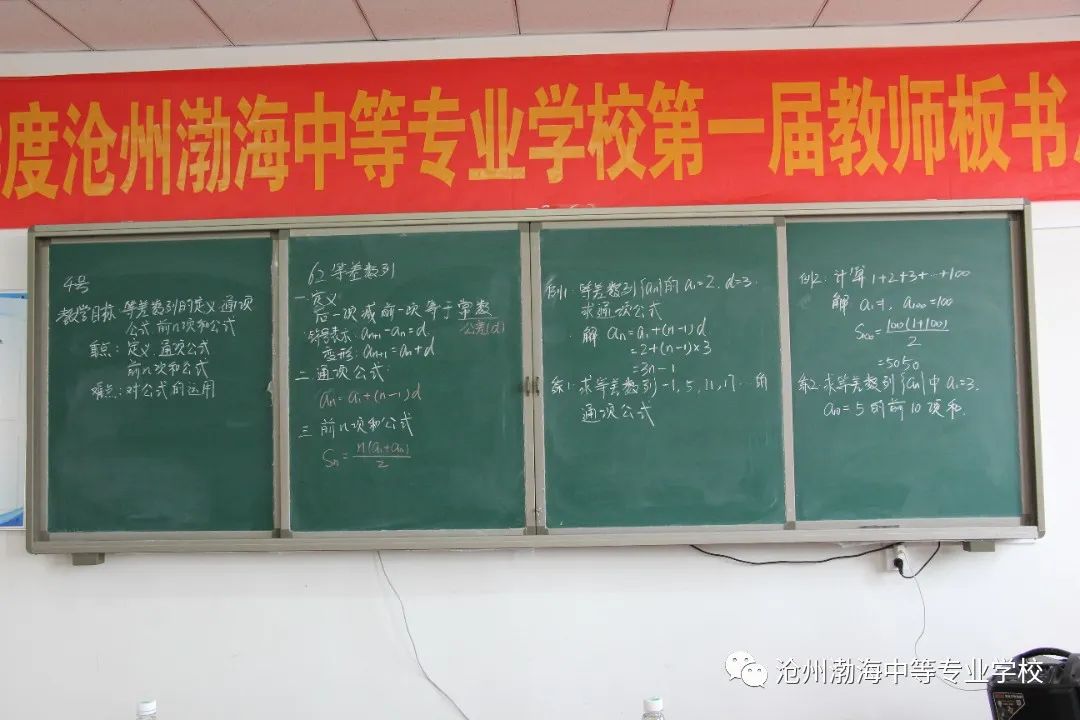 度沧州渤海中等专业学校第一届教师板书
4号
教学目标 等差数列的定义 通项
公式 前n项和公式
重点: 定义. 通项公式
前n项和公式
难点: 对公式的运用
6.2 等差数列
一 定义
后一项减前一项等于常数
公差(d)
符号表示: aₙ₊₁-aₙ=d.
变形: aₙ₊₁=aₙ+d
二 通项公式:
aₙ=a₁+(n-1)d
三 前n项和公式
Sₙ=n(a₁+aₙ)/2
例1: 等差数列{aₙ}的a₁=2. d=3.
求通项公式
解 aₙ=a₁+(n-1)d
=2+(n-1)×3
=3n-1
练1: 求等差数列-1, 5, 11, 17…的
通项公式
例2: 计算1+2+3+…+100
解 a₁=1, a₁₀₀=100
S₁₀₀=100(1+100)/2
=5050
练2: 求等差数列{aₙ}中a₁=3.
a₁₀=5的前10项和.
沧州渤海中等专业学校